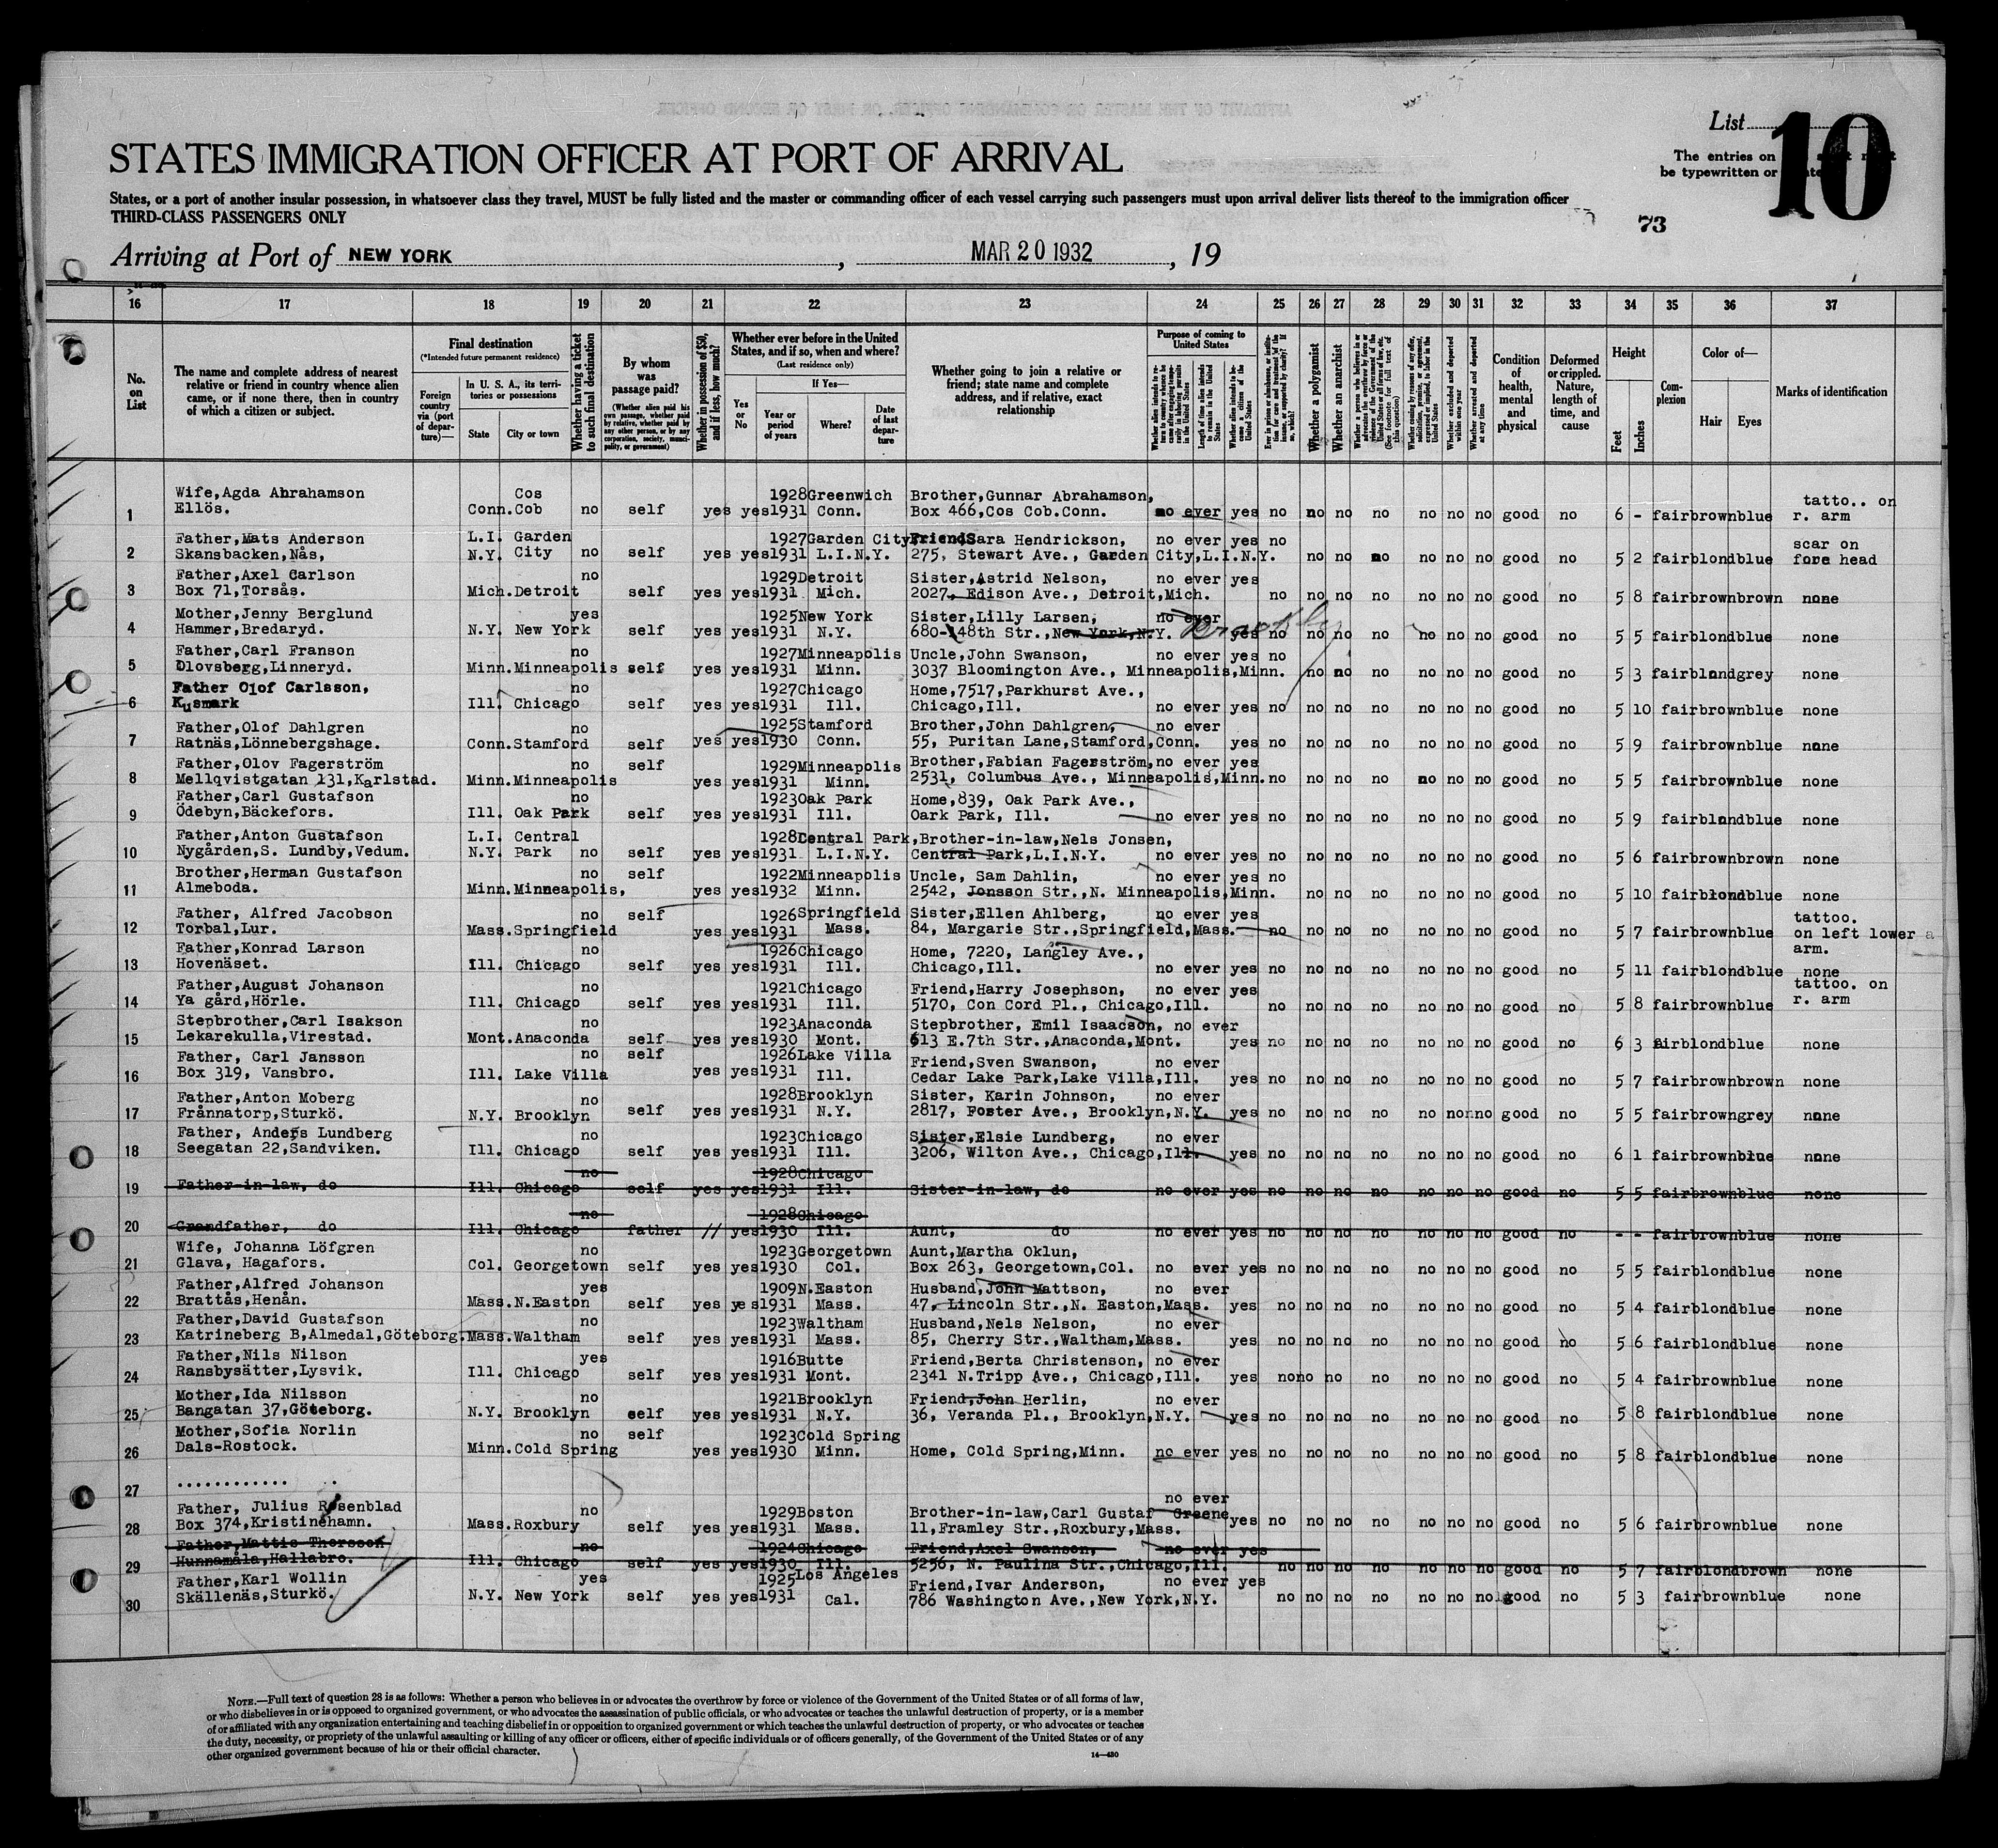 List 10
STATES IMMIGRATION OFFICER AT PORT OF ARRIVAL
The entries on
be typewritten or
States, or a port of another insular possession, in whatsoever class they travel, MUST be fully listed and the master or commanding officer of each vessel carrying such passengers must upon arrival deliver lists thereof to the immigration officer
THIRD-CLASS PASSENGERS ONLY
73
Arriving at Port of NEW YORK, MAR 20 1932, 19
16 17 18 19 20 21 22 23 24 25 26 27 28 29 30 31 32 33 34 35 36 37
No. on List
The name and complete address of nearest relative or friend in country whence alien came, or if none there, then in country of which a citizen or subject.
Final destination
(*Intended future permanent residence)
Foreign country via (port of departure)—
In U. S. A., its territories or possessions
State City or town
Whether having a ticket to such final destination
By whom was passage paid?
(Whether alien paid his own passage, whether paid by relative, whether paid by any other person, or by any corporation, society, municipality, or government)
Whether in possession of $50, and if less, how much?
Whether ever before in the United States, and if so, when and where?
(Last residence only)
Yes or No
If Yes—
Year or period of years Where? Date of last departure
Whether going to join a relative or friend; state name and complete address, and if relative, exact relationship
Purpose of coming to United States
Length of time alien intends to remain in the United States
Whether alien intends to become a citizen of the United States
Whether a polygamist
Whether an anarchist
Whether excluded and deported within one year
Whether arrested and deported at any time
Condition of health, mental and physical
Deformed or crippled. Nature, length of time, and cause
Height
Feet Inches
Complexion
Color of—
Hair Eyes
Marks of identification
Wife,Agda Abrahamson Cos 1928Greenwich Brother,Gunnar Abrahamson, tatto.. on
1 Ellös. Conn.Cob no self yes yes1931 Conn. Box 466,Cos Cob.Conn. no ever yes no no no no no no no good no 6 - fairbrownblue r. arm
Father,Mats Anderson L.I. Garden 1927Garden City, Friend,Sara Hendrickson, no ever yes no scar on
2 Skansbacken,Nås, N.Y. City no self yes yes1931 L.I.N.Y. 275, Stewart Ave., Garden City,L.I.N.Y. no no no no no no good no 5 2 fairblondblue fore head
Father,Axel Carlson no 1929Detroit Sister,Astrid Nelson, no ever yes
3 Box 71,Torsås. Mich.Detroit self yes yes1931 Mich. 2027, Edison Ave., Detroit,Mich. no no no no no no no good no 5 8 fairbrownbrown none
Mother,Jenny Berglund yes 1925New York Sister,Lilly Larsen, no ever
4 Hammer,Bredaryd. N.Y. New York self yes yes1931 N.Y. 680-48th Str.,New York,N.Y. Brooklyn yes no no no no no no no good no 5 5 fairblondblue none
Father,Carl Franson no 1927Minneapolis Uncle,John Swanson, no ever yes no
5 Olovsberg,Linneryd. Minn.Minneapolis self yes yes1931 Minn. 3037 Bloomington Ave., Minneapolis,Minn. no no no no no no good no 5 3 fairblondgrey none
Father Olof Carlsson, no 1927Chicago Home,7517,Parkhurst Ave.,
6 Kusmark Ill. Chicago self yes yes1931 Ill. Chicago,Ill. no ever yes no no no no no no no good no 5 10 fairbrownblue none
Father,Olof Dahlgren no 1925Stamford Brother,John Dahlgren, no ever
7 Ratnäs,Lönnebergshage. Conn.Stamford self yes yes1930 Conn. 55, Puritan Lane,Stamford,Conn. yes no no no no no no no good no 5 9 fairbrownblue none
Father,Olov Fagerström no self 1929Minneapolis Brother,Fabian Fagerström,no ever yes
8 Mellqvistgatan 131,Karlstad. Minn.Minneapolis yes yes1931 Minn. 2531, Columbus Ave., Minneapolis,Minn.no no no no no no no good no 5 5 fairbrownblue none
Father,Carl Gustafson no 1923Oak Park Home,839, Oak Park Ave.,
9 Ödebyn,Bäckefors. Ill. Oak Park self yes yes1931 Ill. Oark Park, Ill. no ever yes no no no no no no no good no 5 9 fairblondblue none
Father,Anton Gustafson L.I. Central 1928Central Park,Brother-in-law,Nels Jonsen,
10 Nygården,S. Lundby,Vedum. N.Y. Park no self yes yes1931 L.I.N.Y. Central Park,L.I.N.Y. no ever yes no no no no no no no good no 5 6 fairbrownbrown none
Brother,Herman Gustafson no self 1922Minneapolis Uncle, Sam Dahlin, no ever yes no
11 Almeboda. Minn.Minneapolis, yes yes1932 Minn. 2542, Jonsson Str.,N. Minneapolis,Minn. no no no no no no good no 5 10 fairblondblue none
Father, Alfred Jacobson no self 1926Springfield Sister,Ellen Ahlberg, no ever yes tattoo.
12 Torbal,Lur. Mass.Springfield yes yes1931 Mass. 84, Margarie Str.,Springfield,Mass. no no no no no no no good no 5 7 fairbrownblue on left lower a
Father,Konrad Larson no 1926Chicago Home, 7220, Langley Ave., arm.
13 Hovenäset. Ill. Chicago self yes yes1931 Ill. Chicago,Ill. no ever yes no no no no no no no good no 5 11 fairblondblue none
Father,August Johanson no 1921Chicago Friend,Harry Josephson, no ever yes tattoo. on
14 Ya gård,Hörle. Ill. Chicago self yes yes1931 Ill. 5170, Con Cord Pl., Chicago,Ill. no no no no no no no good no 5 8 fairbrownblue r. arm
Stepbrother,Carl Isakson no 1923Anaconda Stepbrother, Emil Isaacson, no ever
15 Lekarekulla,Virestad. Mont.Anaconda self yes yes1930 Mont. 613 E.7th Str.,Anaconda,Mont. yes no no no no no no no good no 6 3 fairblondblue none
Father, Carl Jansson no self 1926Lake Villa Friend,Sven Swanson, no ever
16 Box 319, Vansbro. Ill. Lake Villa yes yes1931 Ill. Cedar Lake Park,Lake Villa,Ill. yes no no no no no no no good no 5 7 fairbrownbrown none
Father,Anton Moberg no 1928Brooklyn Sister, Karin Johnson, no ever
17 Frånnatorp,Sturkö. N.Y. Brooklyn self yes yes1931 N.Y. 2817, Foster Ave., Brooklyn,N.Y. yes no no no no no no no good no 5 5 fairbrowngrey none
Father, Anders Lundberg no 1923Chicago Sister,Elsie Lundberg, no ever
18 Seegatan 22,Sandviken. Ill. Chicago self yes yes1931 Ill. 3206, Wilton Ave., Chicago,Ill. yes no no no no no no no good no 6 1 fairbrownblue none
no 1928Chicago
19 Father-in-law, do Ill. Chicago self yes yes1931 Ill. Sister-in-law, do no ever yes no no no no no no no good no 5 5 fairbrownblue none
no 1928Chicago
20 Grandfather, do Ill. Chicago father // yes1930 Ill. Aunt, do no ever yes no no no no no no no good no - - fairbrownblue none
Wife, Johanna Löfgren no 1923Georgetown Aunt,Martha Oklun,
21 Glava, Hagafors. Col. Georgetown self yes yes1930 Col. Box 263, Georgetown,Col. no ever yes no no no no no no no good no 5 5 fairblondblue none
Father,Alfred Johanson yes 1909N.Easton Husband,John Mattson, no ever
22 Brattås,Henån. Mass.N.Easton self yes yes1931 Mass. 47, Lincoln Str.,N. Easton,Mass. yes no no no no no no no good no 5 4 fairblondblue none
Father,David Gustafson no 1923Waltham Husband,Nels Nelson, no ever
23 Katrineberg B,Almedal,Göteborg.Mass.Waltham self yes yes1931 Mass. 85, Cherry Str.,Waltham,Mass. yes no no no no no no no good no 5 6 fairblondblue none
Father,Nils Nilson yes 1916Butte Friend,Berta Christenson, no ever
24 Ransbysätter,Lysvik. Ill. Chicago self yes yes1931 Mont. 2341 N.Tripp Ave., Chicago,Ill. yes no no no no no no no good no 5 4 fairblondblue none
Mother,Ida Nilsson no 1921Brooklyn Friend,John Herlin, no ever
25 Bangatan 37,Göteborg. N.Y. Brooklyn self yes yes1931 N.Y. 36, Veranda Pl., Brooklyn,N.Y. yes no no no no no no no good no 5 8 fairblondblue none
Mother,Sofia Norlin no self 1923Cold Spring
26 Dals-Rostock. Minn.Cold Spring yes yes1930 Minn. Home, Cold Spring,Minn. no ever yes no no no no no no no good no 5 8 fairblondblue none
27 ............ ..
no ever
Father, Julius Rosenblad no 1929Boston Brother-in-law,Carl Gustaf Greene
28 Box 374,Kristinehamn. Mass.Roxbury self yes yes1931 Mass. 11,Framley Str.,Roxbury,Mass. yes no no no no no no no good no 5 6 fairbrownblue none
Father,Mattis Thoresson no 1924Chicago Friend,Axel Swanson, no ever yes
29 Hunnamåla,Hallabro. Ill. Chicago self yes yes1930 Ill. 5256, N. Paulina Str.,Chicago,Ill. no no no no no no no good no 5 7 fairblondbrown none
Father,Karl Wollin yes 1925Los Angeles Friend,Ivar Anderson, no ever yes
30 Skällenäs,Sturkö. N.Y. New York self yes yes1931 Cal. 786 Washington Ave.,New York,N.Y. no no no no no no no good no 5 3 fairbrownblue none
NOTE.—Full text of question 28 is as follows: Whether a person who believes in or advocates the overthrow by force or violence of the Government of the United States or of all forms of law,
or who disbelieves in or is opposed to organized government, or who advocates the assassination of public officials, or who advocates or teaches the unlawful destruction of property, or is a member
of or affiliated with any organization entertaining and teaching disbelief in or opposition to organized government or which teaches the unlawful destruction of property, or who advocates or teaches
the duty, necessity, or propriety of the unlawful assaulting or killing of any officer or officers, either of specific individuals or of officers generally, of the Government of the United States or of any
other organized government because of his or their official character.
14—430